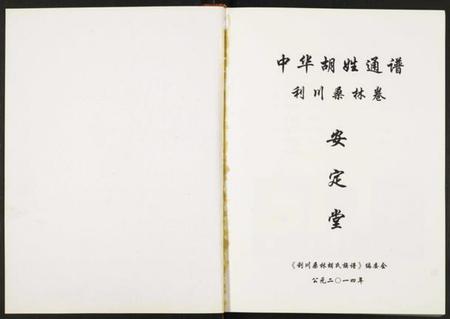 中华胡姓通谱
利川桑林卷
安定堂
《利川桑林胡氏族谱》编委会
公元二〇一四年